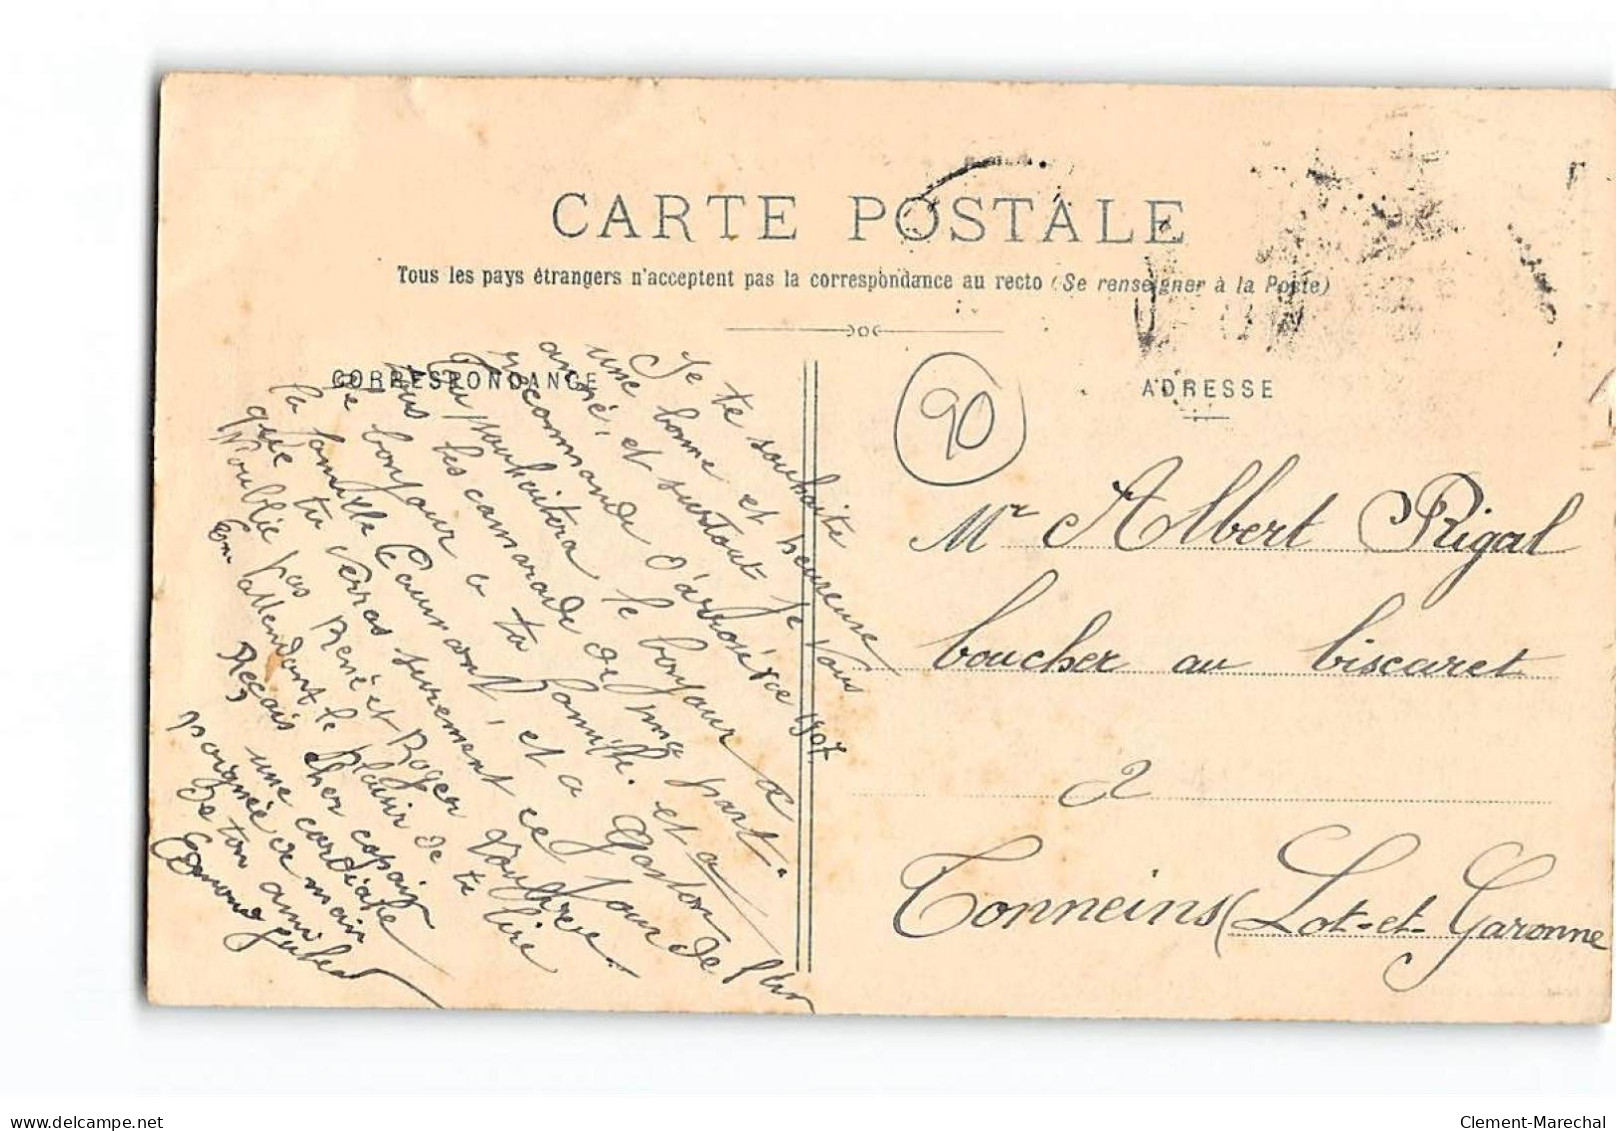 CARTE POSTALE
Tous les pays étrangers n'acceptent pas la correspondance au recto (Se renseigner à la Poste)
CORRESPONDANCE
ADRESSE
90
Je te souhaite
une bonne et heureuse
anné, et surtout je vous
récommande d'arrosér ce 1907.
Tu souhaitera le bonjour a
tous les camarade de ma part.
le bonjour a ta famille. et a
la famille Caumont, et a Gaston
que tu verras surement ce jour de l'an
N'oublie pas René et Roger
En attendant le plaisir de te lire
Reçois cher copain
une cordiale
poignée de main
de ton ami
Edmond
Mr Albert Rigal
boucher au biscaret
a
Tonneins (Lot-et-Garonne
Clement-Marechal